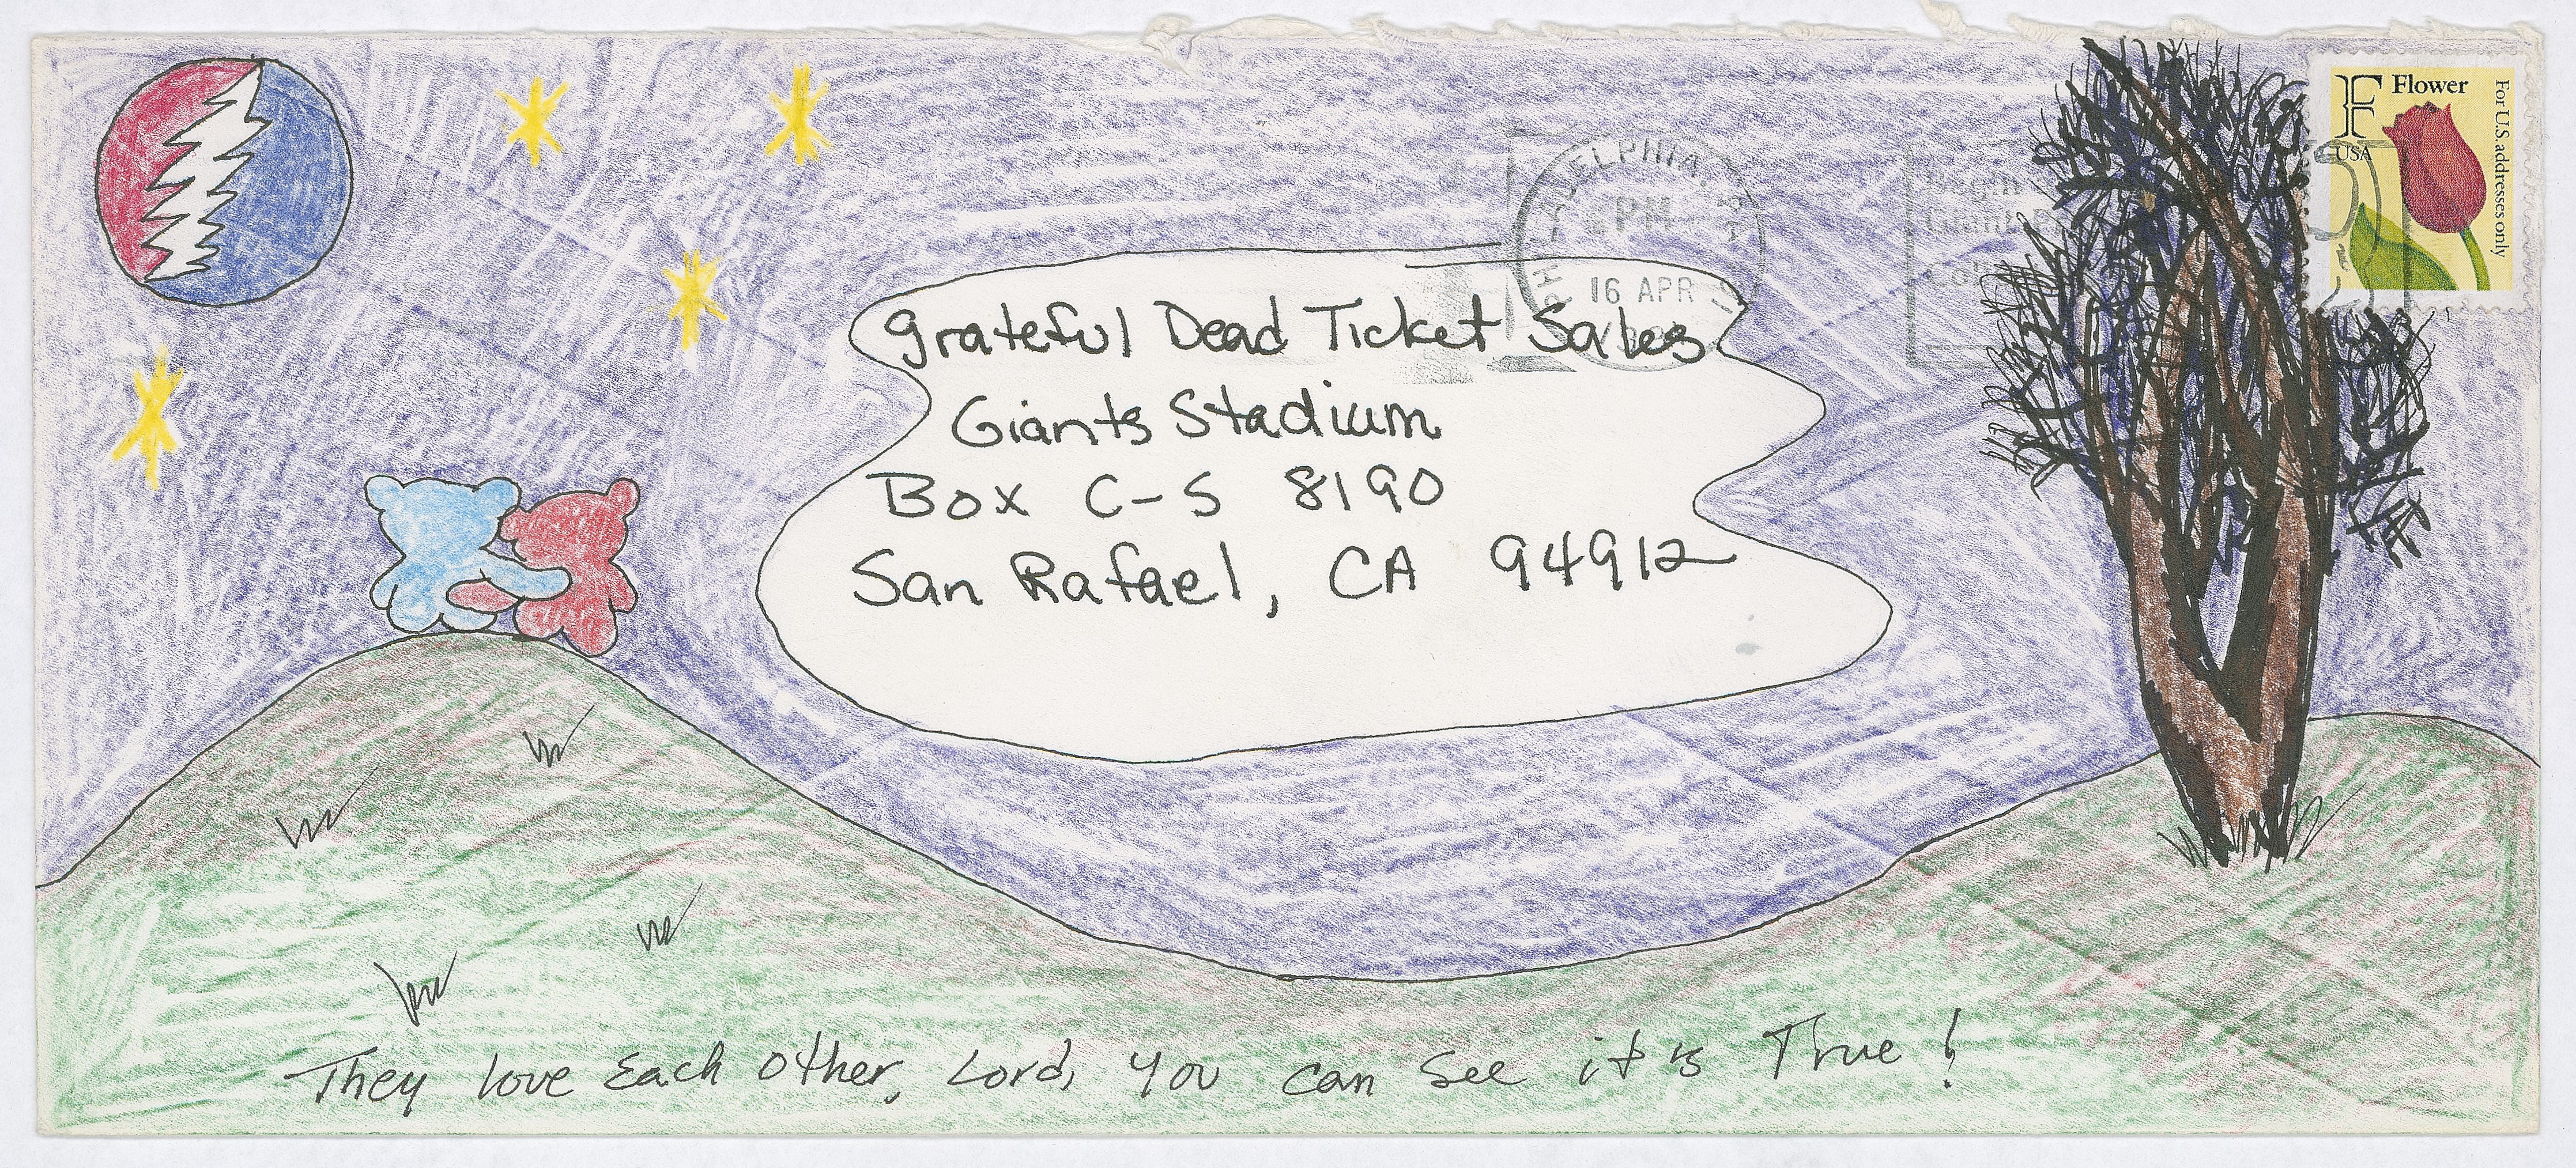 F Flower
USA
For U.S. addresses only
PM
16 APR
Grateful Dead Ticket Sales
Giants Stadium
Box C-S 8190
San Rafael, CA 94912
They love Each other, Lord, you can See it is True!